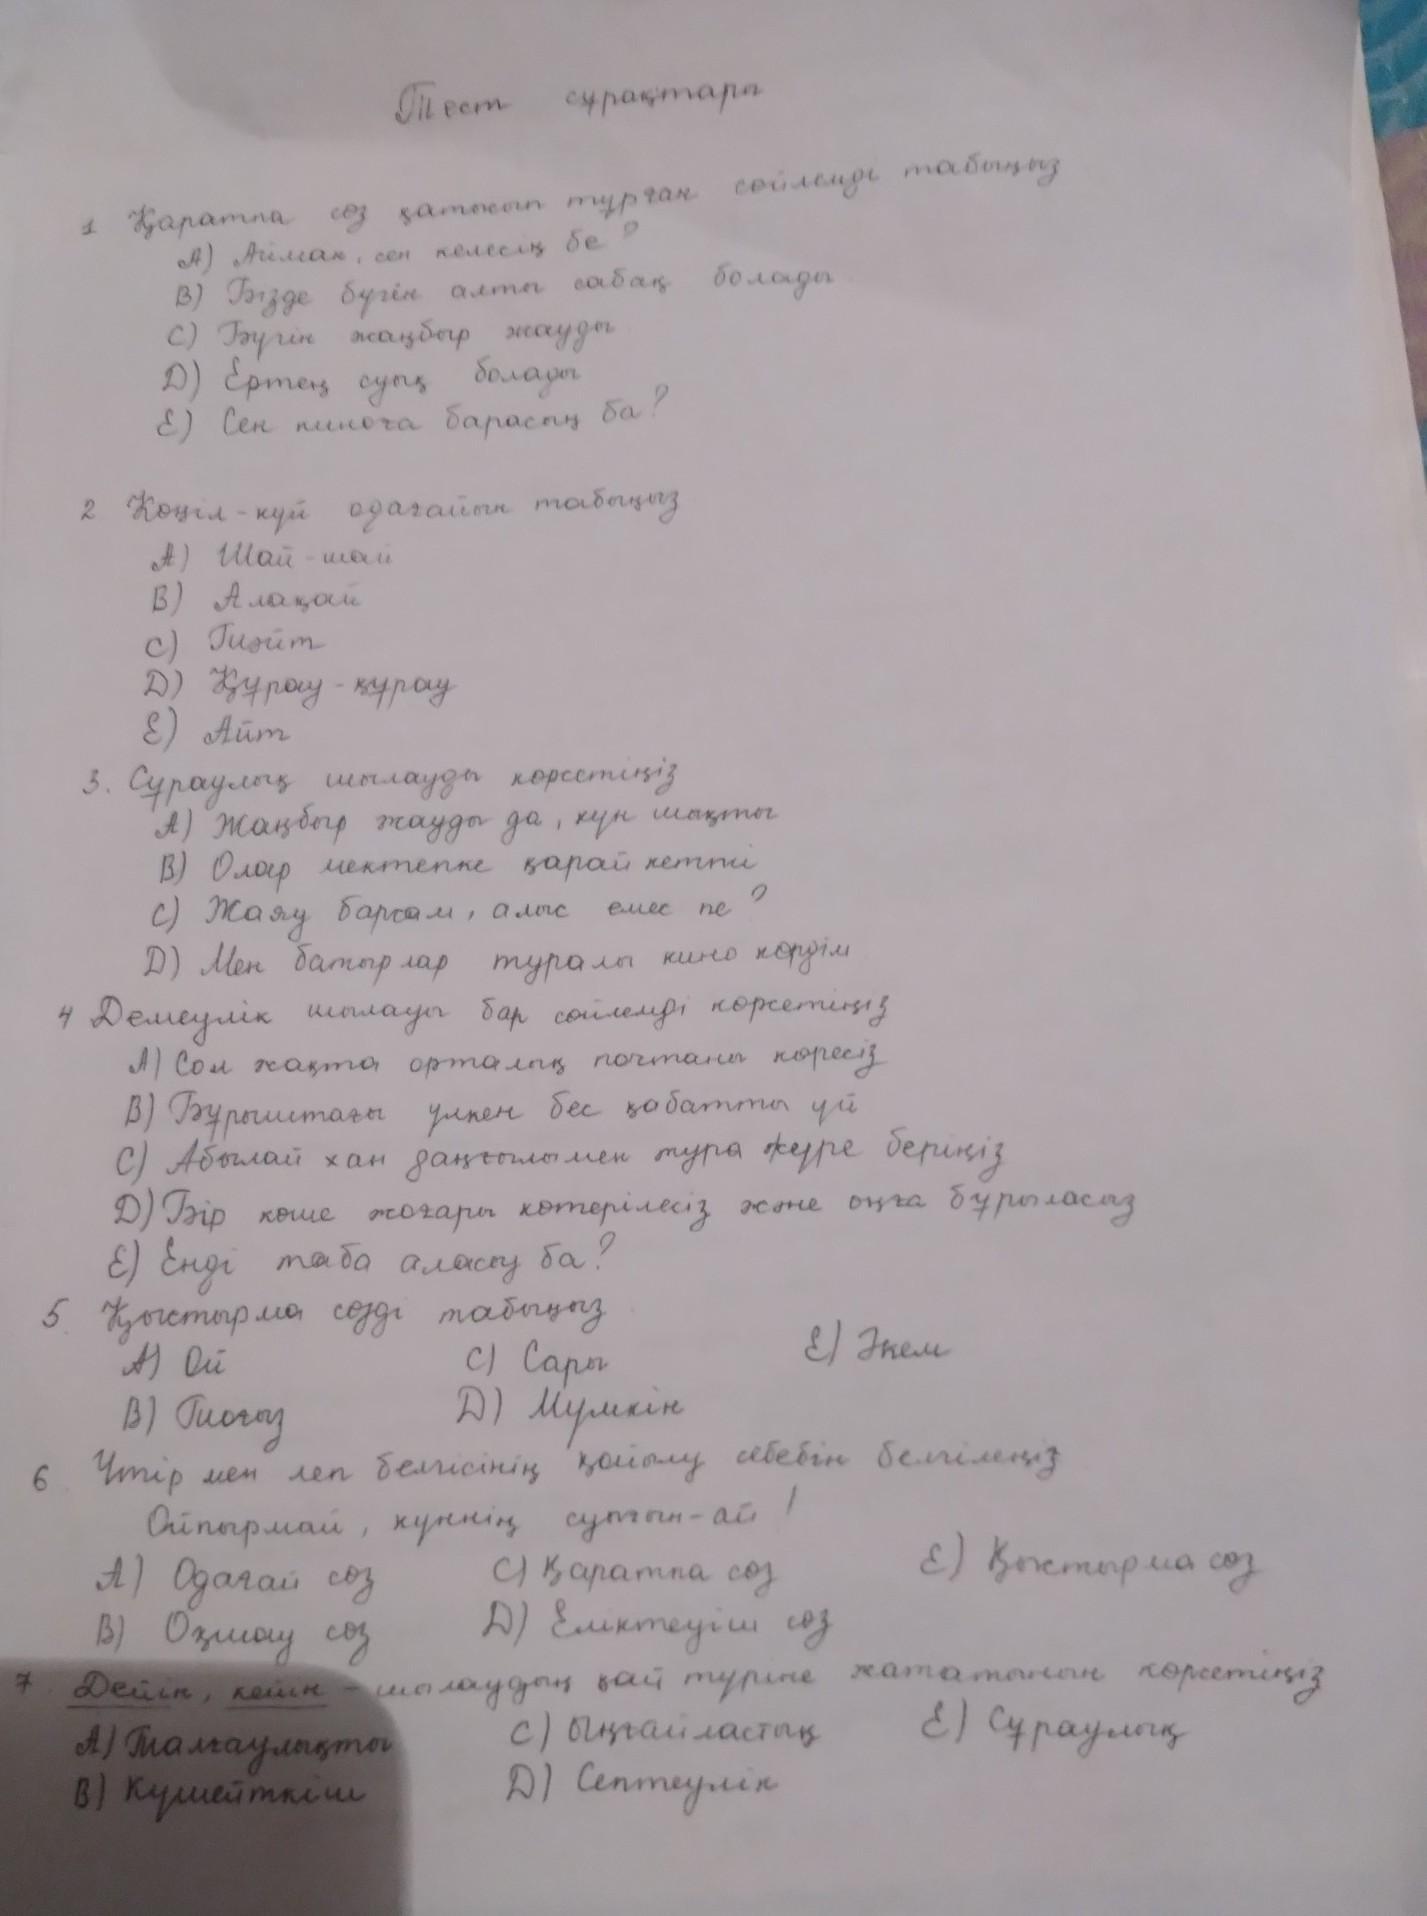 Тест сұрақтары
1 Қаратпа сөз қатысып тұрған сөйлемді табыңыз
А) Айман, сен келесің бе?
В) Бізде бүгін алты сабақ болады
С) Бүгін жаңбыр жауды
D) Ертең суық болады
Е) Сен киноға барасың ба?
2 Көңіл-күй одағайын табыңыз
А) Шәй-шәй
В) Алақай
С) Пшәйт
D) Құрау-құрау
Е) Айт
3. Сұраулық шылауды көрсетіңіз
А) Жаңбыр жауды да, күн шықты
В) Олар мектепке қарай кетті
С) Жаяу барсам, алыс емес пе?
D) Мен батырлар туралы кино көрдім
4 Демеулік шылауы бар сөйлемді көрсетіңіз
А) Сол жақта орталық почтаны көресіз
В) Бұрыштағы үлкен бес қабатты үй
С) Абылай хан даңғылымен тура жүре беріңіз
D) Бір көше жоғары көтерілесіз және оңға бұрыласыз
Е) Енді таба аласыз ба?
5. Қыстырма сөзді табыңыз
А) Ой С) Сары Е) Әкем
В) Пысық D) Мүмкін
6 Үтір мен леп белгісінің қойылу себебін белгілеңіз
Ойпырмай, күннің суығын-ай!
А) Одағай сөз С) Қаратпа сөз Е) Қыстырма сөз
В) Оқшау сөз D) Еліктеуіш сөз
7. Дейін, кейін - шылаудың қай түріне жататынын көрсетіңіз
А) Талғаулықты С) Ыңғайластық Е) Сұраулық
В) Күшейткіш D) Септеулік